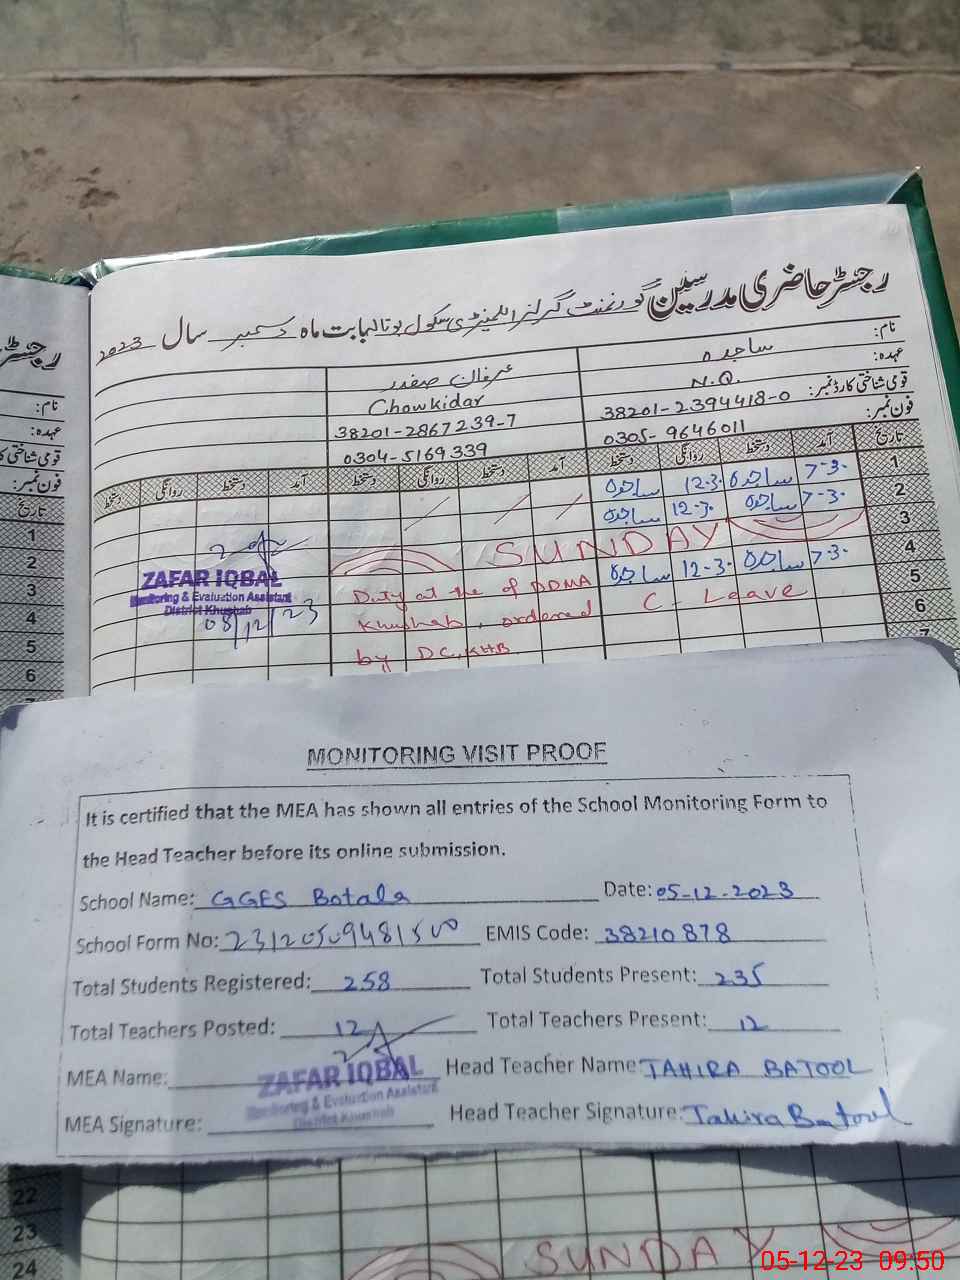 رجسٹر حاضری مدرسین گورنمنٹ گرلز ایلیمنٹری سکول بوتالہ بابت ماہ دسمبر سال 2023
نام: ساجدہ عرفان صفدر
عہدہ: N.Q. Chowkidar
قومی شناختی کارڈ نمبر: 38201-2394418-0 38201-2867239-7
فون نمبر: 0305-9646011 0304-5169339
تاریخ آمد دستخط روانگی دستخط آمد دستخط روانگی دستخط آمد دستخط روانگی دستخط
1 7-3. ساجدہ 12-3. ساجدہ
2 7-3. ساجدہ 12-3. ساجدہ
3 SUNDAY
4 7-3. ساجدہ 12-3. ساجدہ
5 C. Leave
6
Duty at the of DDMA
Khushab, ordered
by DC, KHB
ZAFAR IQBAL
Monitoring & Evaluation Assistant
District Khushab
08/12/23
رجسٹر
نام:
عہدہ:
فون نمبر:
تاریخ
1
2
3
4
5
6
MONITORING VISIT PROOF
It is certified that the MEA has shown all entries of the School Monitoring Form to
the Head Teacher before its online submission.
School Name: GGES Botala Date: 05-12-2023
School Form No: 23120509481500 EMIS Code: 38210878
Total Students Registered: 258 Total Students Present: 235
Total Teachers Posted: 12 Total Teachers Present: 12
MEA Name: Head Teacher Name: TAHIRA BATOOL
ZAFAR IQBAL
Monitoring & Evaluation Assistant
District Khushab
MEA Signature: Head Teacher Signature: Tahira Batool
22
23
24
SUNDAY
05-12-23 09:50